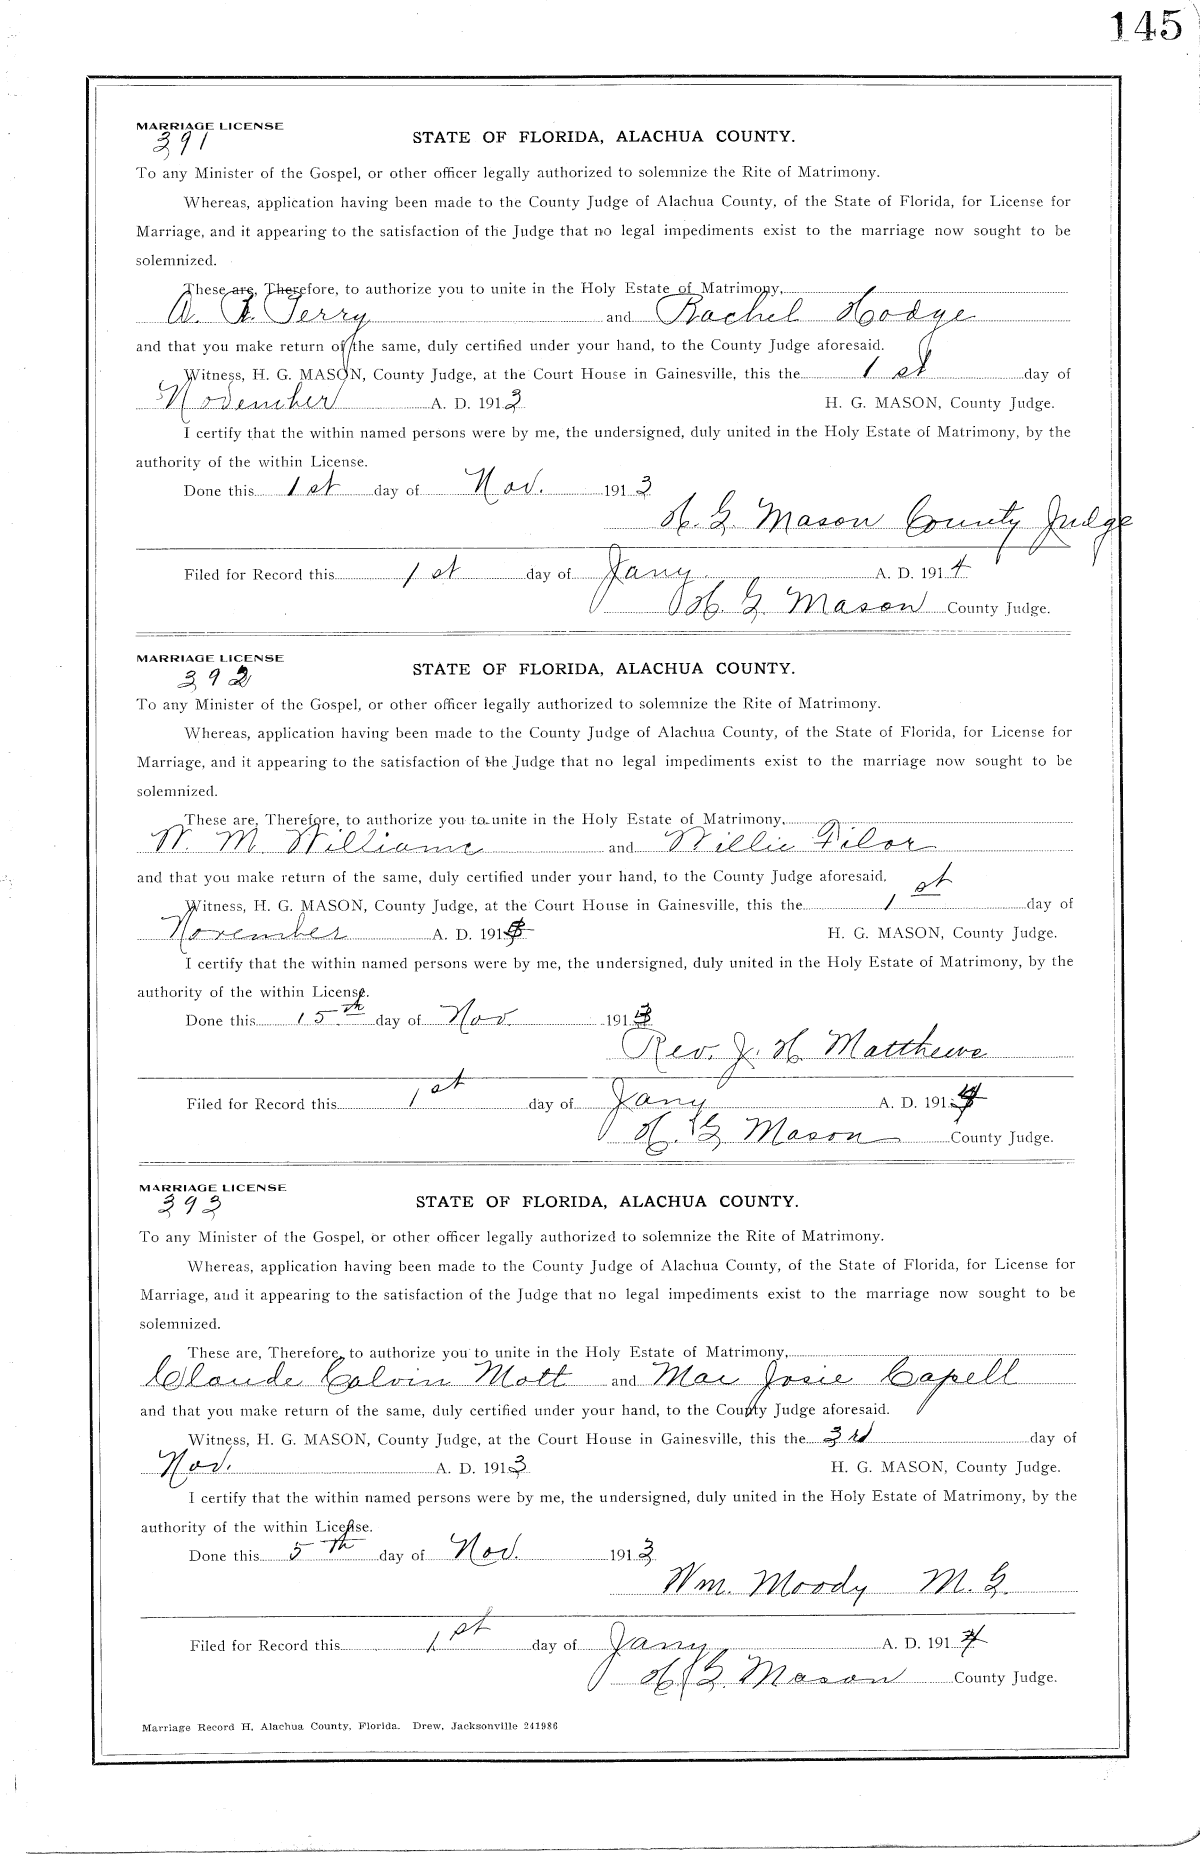 145
MARRIAGE LICENSE
391
STATE OF FLORIDA, ALACHUA COUNTY.
To any Minister of the Gospel, or other officer legally authorized to solemnize the Rite of Matrimony.
Whereas, application having been made to the County Judge of Alachua County, of the State of Florida, for License for
Marriage, and it appearing to the satisfaction of the Judge that no legal impediments exist to the marriage now sought to be
solemnized.
These are, Therefore, to authorize you to unite in the Holy Estate of Matrimony,
A. Terry and Rachel Hodge
and that you make return of the same, duly certified under your hand, to the County Judge aforesaid.
Witness, H. G. MASON, County Judge, at the Court House in Gainesville, this the 1 st day of
November A. D. 1913 H. G. MASON, County Judge.
I certify that the within named persons were by me, the undersigned, duly united in the Holy Estate of Matrimony, by the
authority of the within License.
Done this 1 st day of Nov. 1913
H. G. Mason County Judge
Filed for Record this 1 st day of Jany A. D. 1914
H. G. Mason County Judge.
MARRIAGE LICENSE
392
STATE OF FLORIDA, ALACHUA COUNTY.
To any Minister of the Gospel, or other officer legally authorized to solemnize the Rite of Matrimony.
Whereas, application having been made to the County Judge of Alachua County, of the State of Florida, for License for
Marriage, and it appearing to the satisfaction of the Judge that no legal impediments exist to the marriage now sought to be
solemnized.
These are, Therefore, to authorize you to unite in the Holy Estate of Matrimony,
W. M. Williams and Willie Filor
and that you make return of the same, duly certified under your hand, to the County Judge aforesaid.
Witness, H. G. MASON, County Judge, at the Court House in Gainesville, this the 1 st day of
November A. D. 1913 H. G. MASON, County Judge.
I certify that the within named persons were by me, the undersigned, duly united in the Holy Estate of Matrimony, by the
authority of the within License.
Done this 15th day of Nov. 1913
Rev. J. H. Matthews
Filed for Record this 1 st day of Jany A. D. 1914
H. G. Mason County Judge.
MARRIAGE LICENSE
393
STATE OF FLORIDA, ALACHUA COUNTY.
To any Minister of the Gospel, or other officer legally authorized to solemnize the Rite of Matrimony.
Whereas, application having been made to the County Judge of Alachua County, of the State of Florida, for License for
Marriage, and it appearing to the satisfaction of the Judge that no legal impediments exist to the marriage now sought to be
solemnized.
These are, Therefore, to authorize you to unite in the Holy Estate of Matrimony,
Claude Calvin Mott and Mae Josie Capell
and that you make return of the same, duly certified under your hand, to the County Judge aforesaid.
Witness, H. G. MASON, County Judge, at the Court House in Gainesville, this the 3rd day of
Nov. A. D. 1913 H. G. MASON, County Judge.
I certify that the within named persons were by me, the undersigned, duly united in the Holy Estate of Matrimony, by the
authority of the within License.
Done this 5 Th day of Nov. 1913
Wm. Moody M. G.
Filed for Record this 1 st day of Jany A. D. 1914
H. G. Mason County Judge.
Marriage Record H, Alachua County, Florida. Drew, Jacksonville 241986